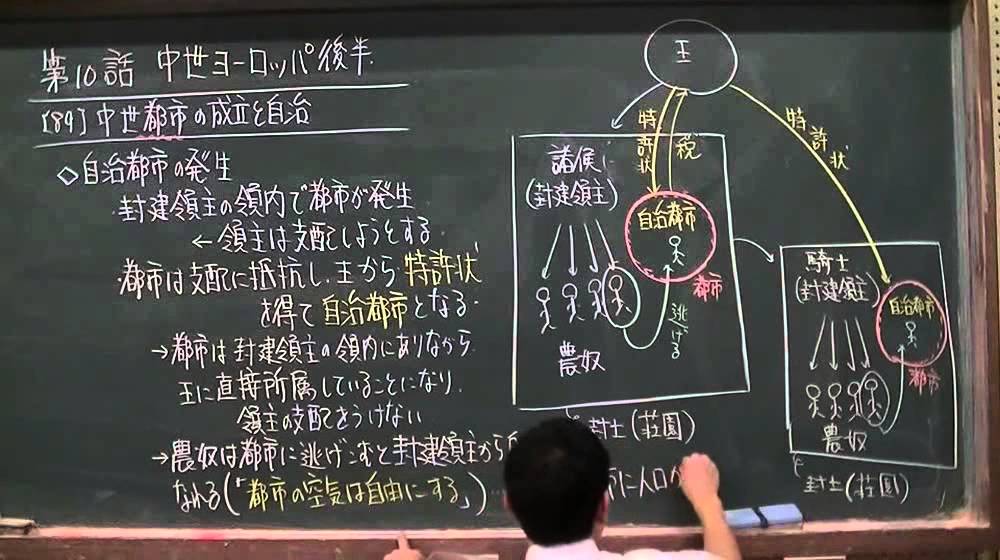 第10話 中世ヨーロッパ後半
[89] 中世都市の成立と自治
◇自治都市の発生
封建領主の領内で都市が発生
←領主は支配しようとする
都市は支配に抵抗し、王から特許状
を得て自治都市となる
→都市は封建領主の領内にありながら
王に直接所属していることになり
領主の支配をうけない
→農奴は都市に逃げこむと封建領主から
なれる(「都市の空気は自由にする」)…
市に人口が
王
特許状
税
特許状
諸侯
(封建領主)
自治都市
都市
逃げる
農奴
封土(荘園)
騎士
(封建領主)
自治都市
都市
農奴
封土(荘園)